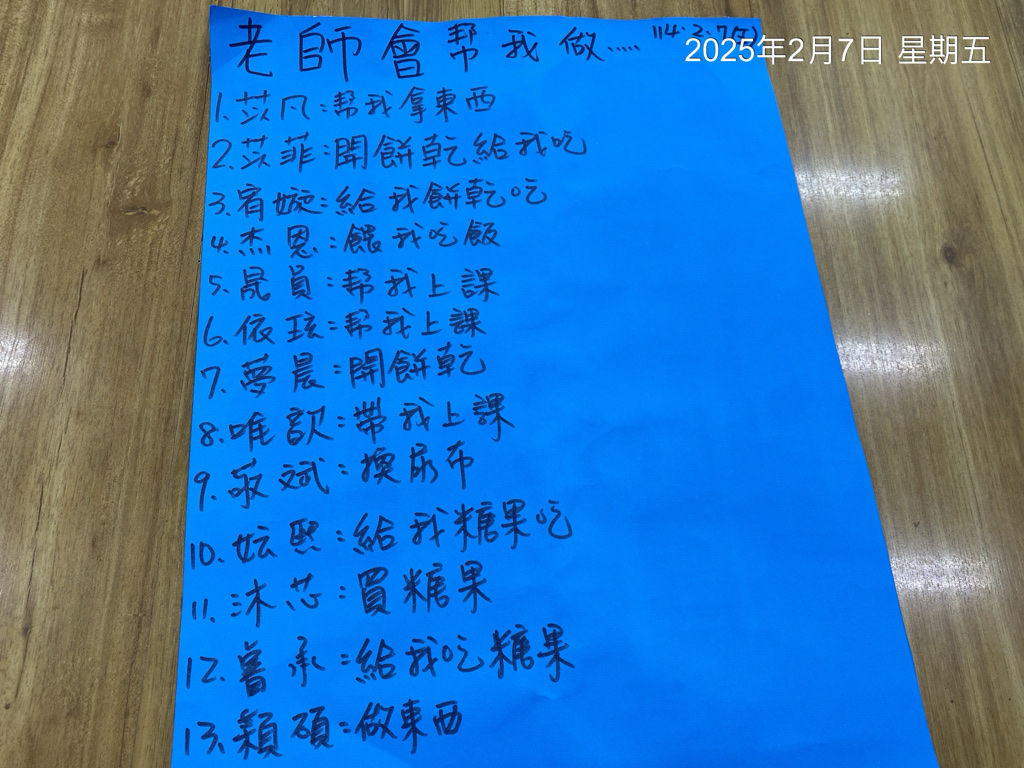 老師會幫我做.....
114.2.7(五)
2025年2月7日 星期五
1.苡凡:幫我拿東西
2.苡菲:開餅乾給我吃
3.宥嫙:給我餅乾吃
4.杰恩:餵我吃飯
5.晟員:幫我上課
6.依玹:幫我上課
7.夢晨:開餅乾
8.唯歆:帶我上課
9.斌:換尿布
10.妘熙:給我糖果吃
11.沐芯:買糖果
12.承:給我吃糖果
13.穎碩:做東西